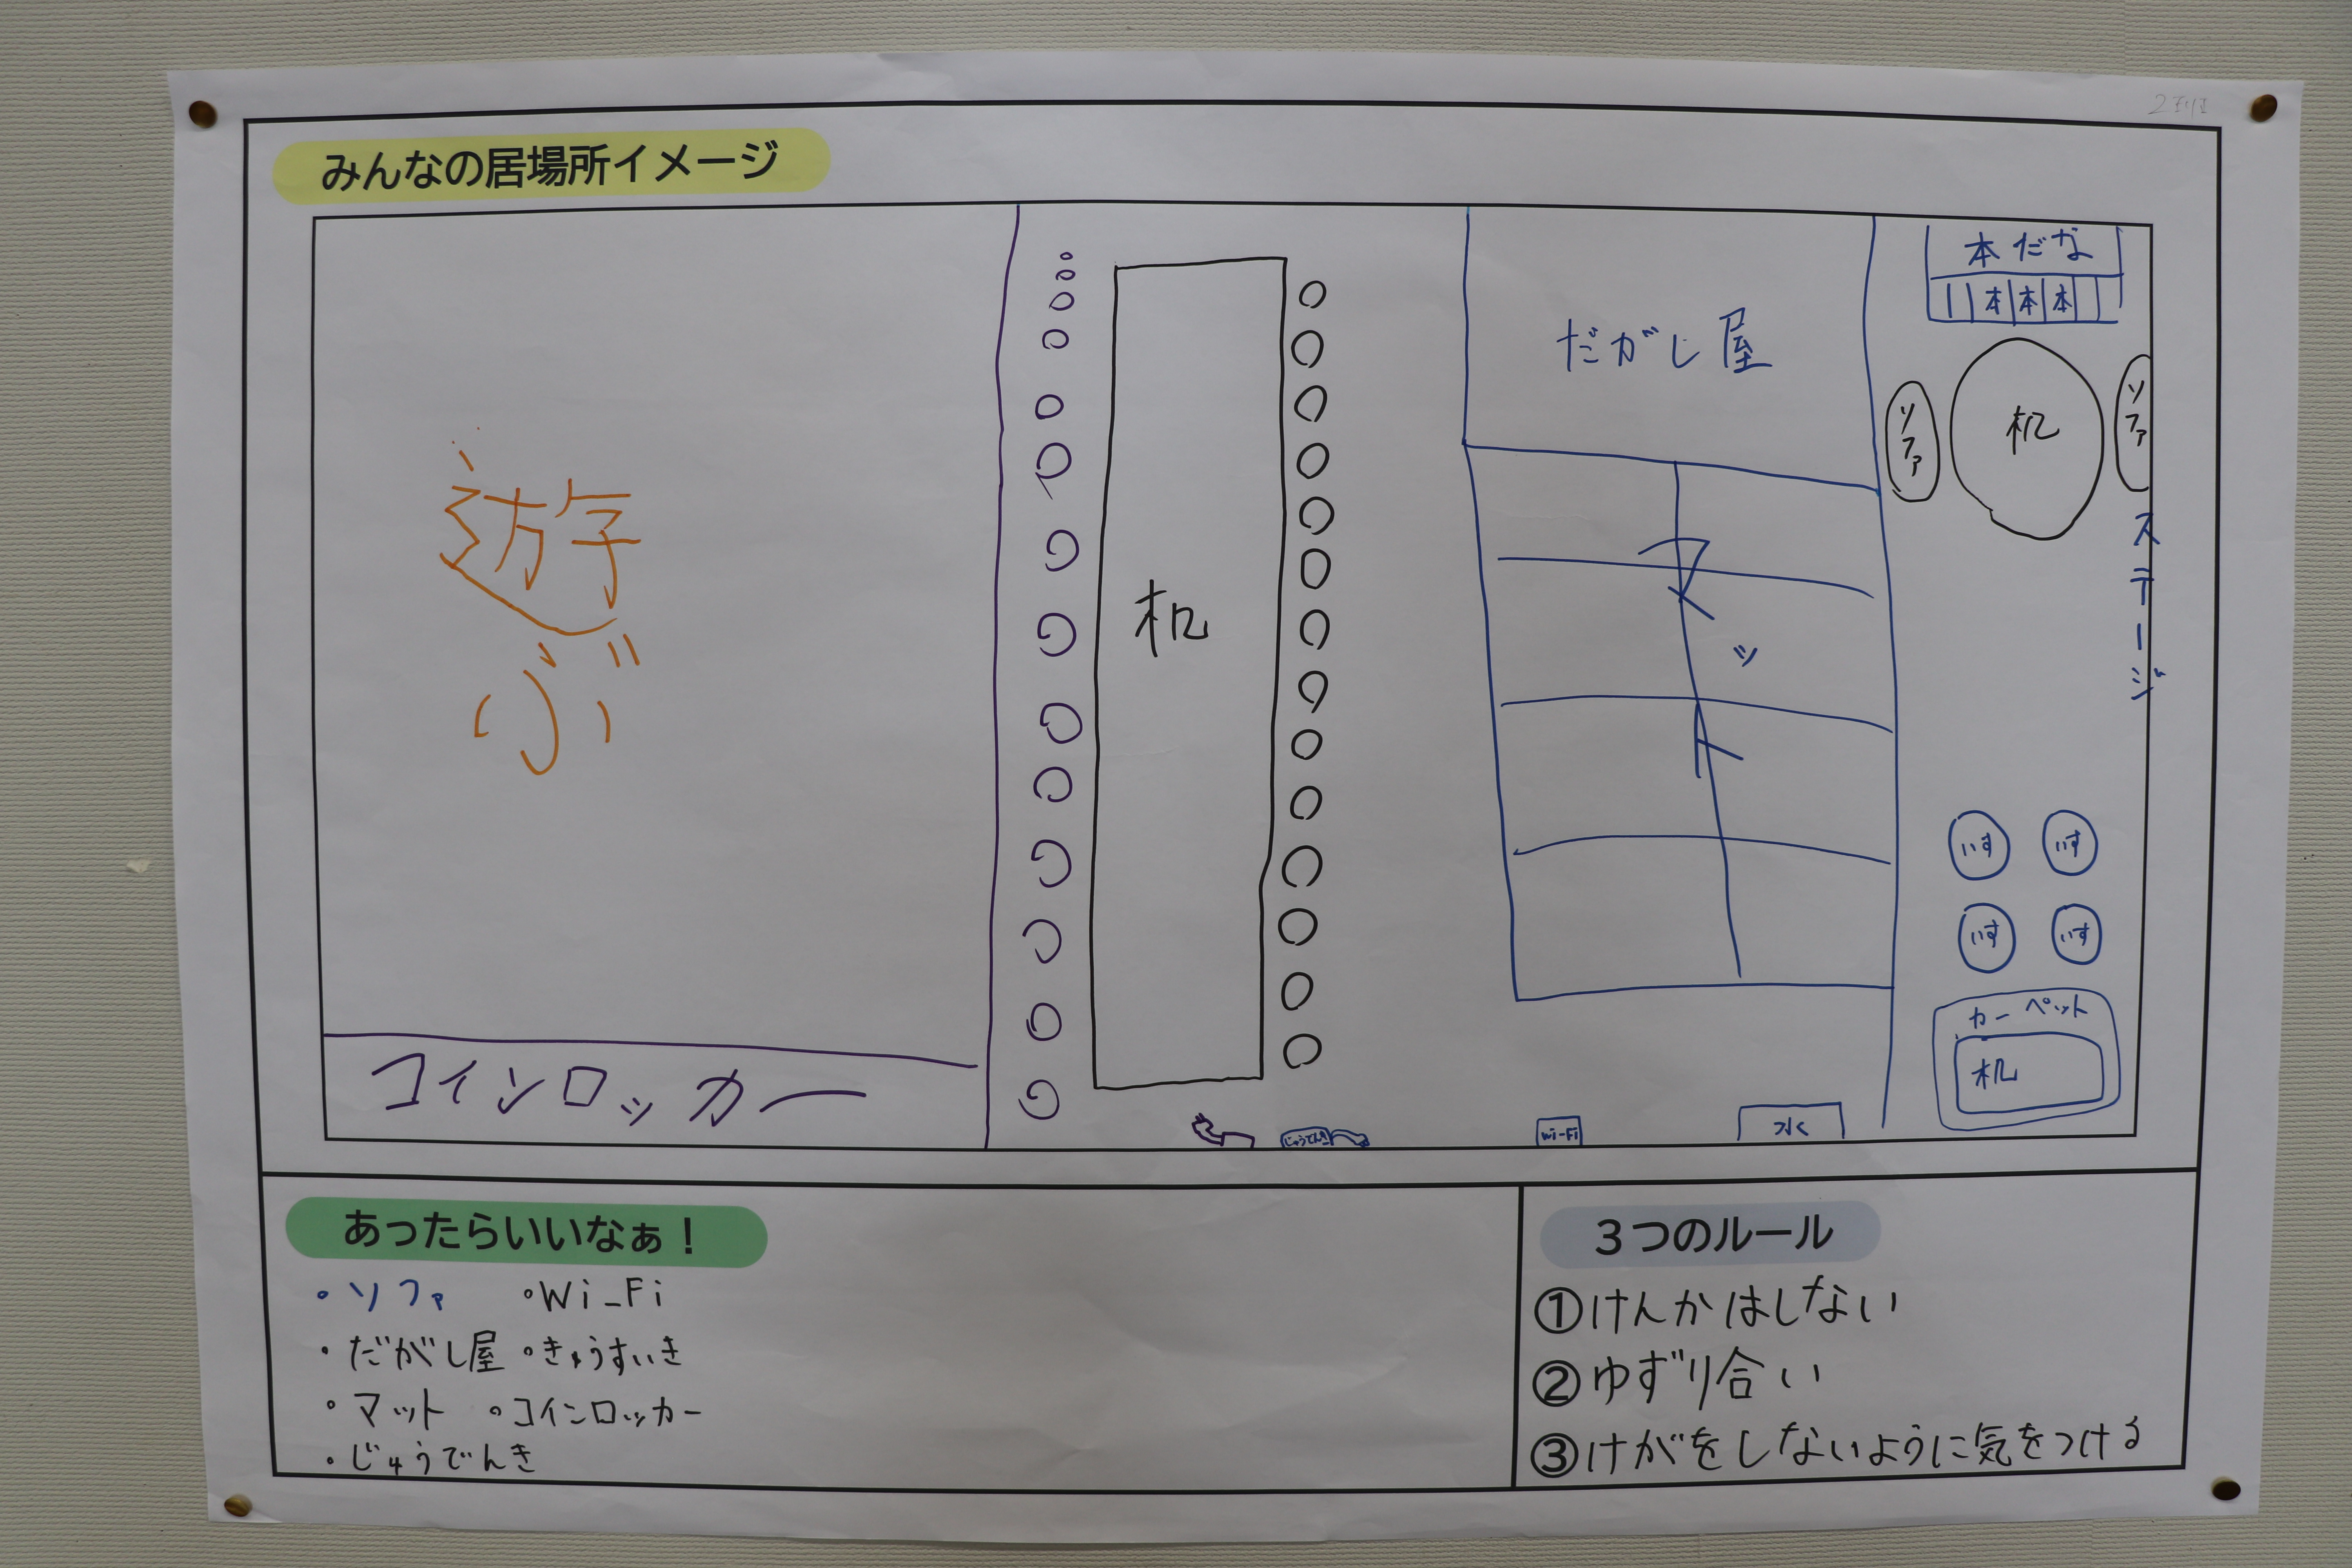 みんなの居場所イメージ
遊ぶ
コインロッカー
机
だがし屋
マット
本だな
本本本
ソファ
机
ソファ
ステージ
いす
いす
いす
いす
カーペット
机
じゅうでんき
Wi-Fi
水
あったらいいなぁ！
・ソファ ・Wi-Fi
・だがし屋 ・きゅうすいき
・マット ・コインロッカー
・じゅうでんき
３つのルール
①けんかはしない
②ゆずり合い
③けがをしないように気をつける